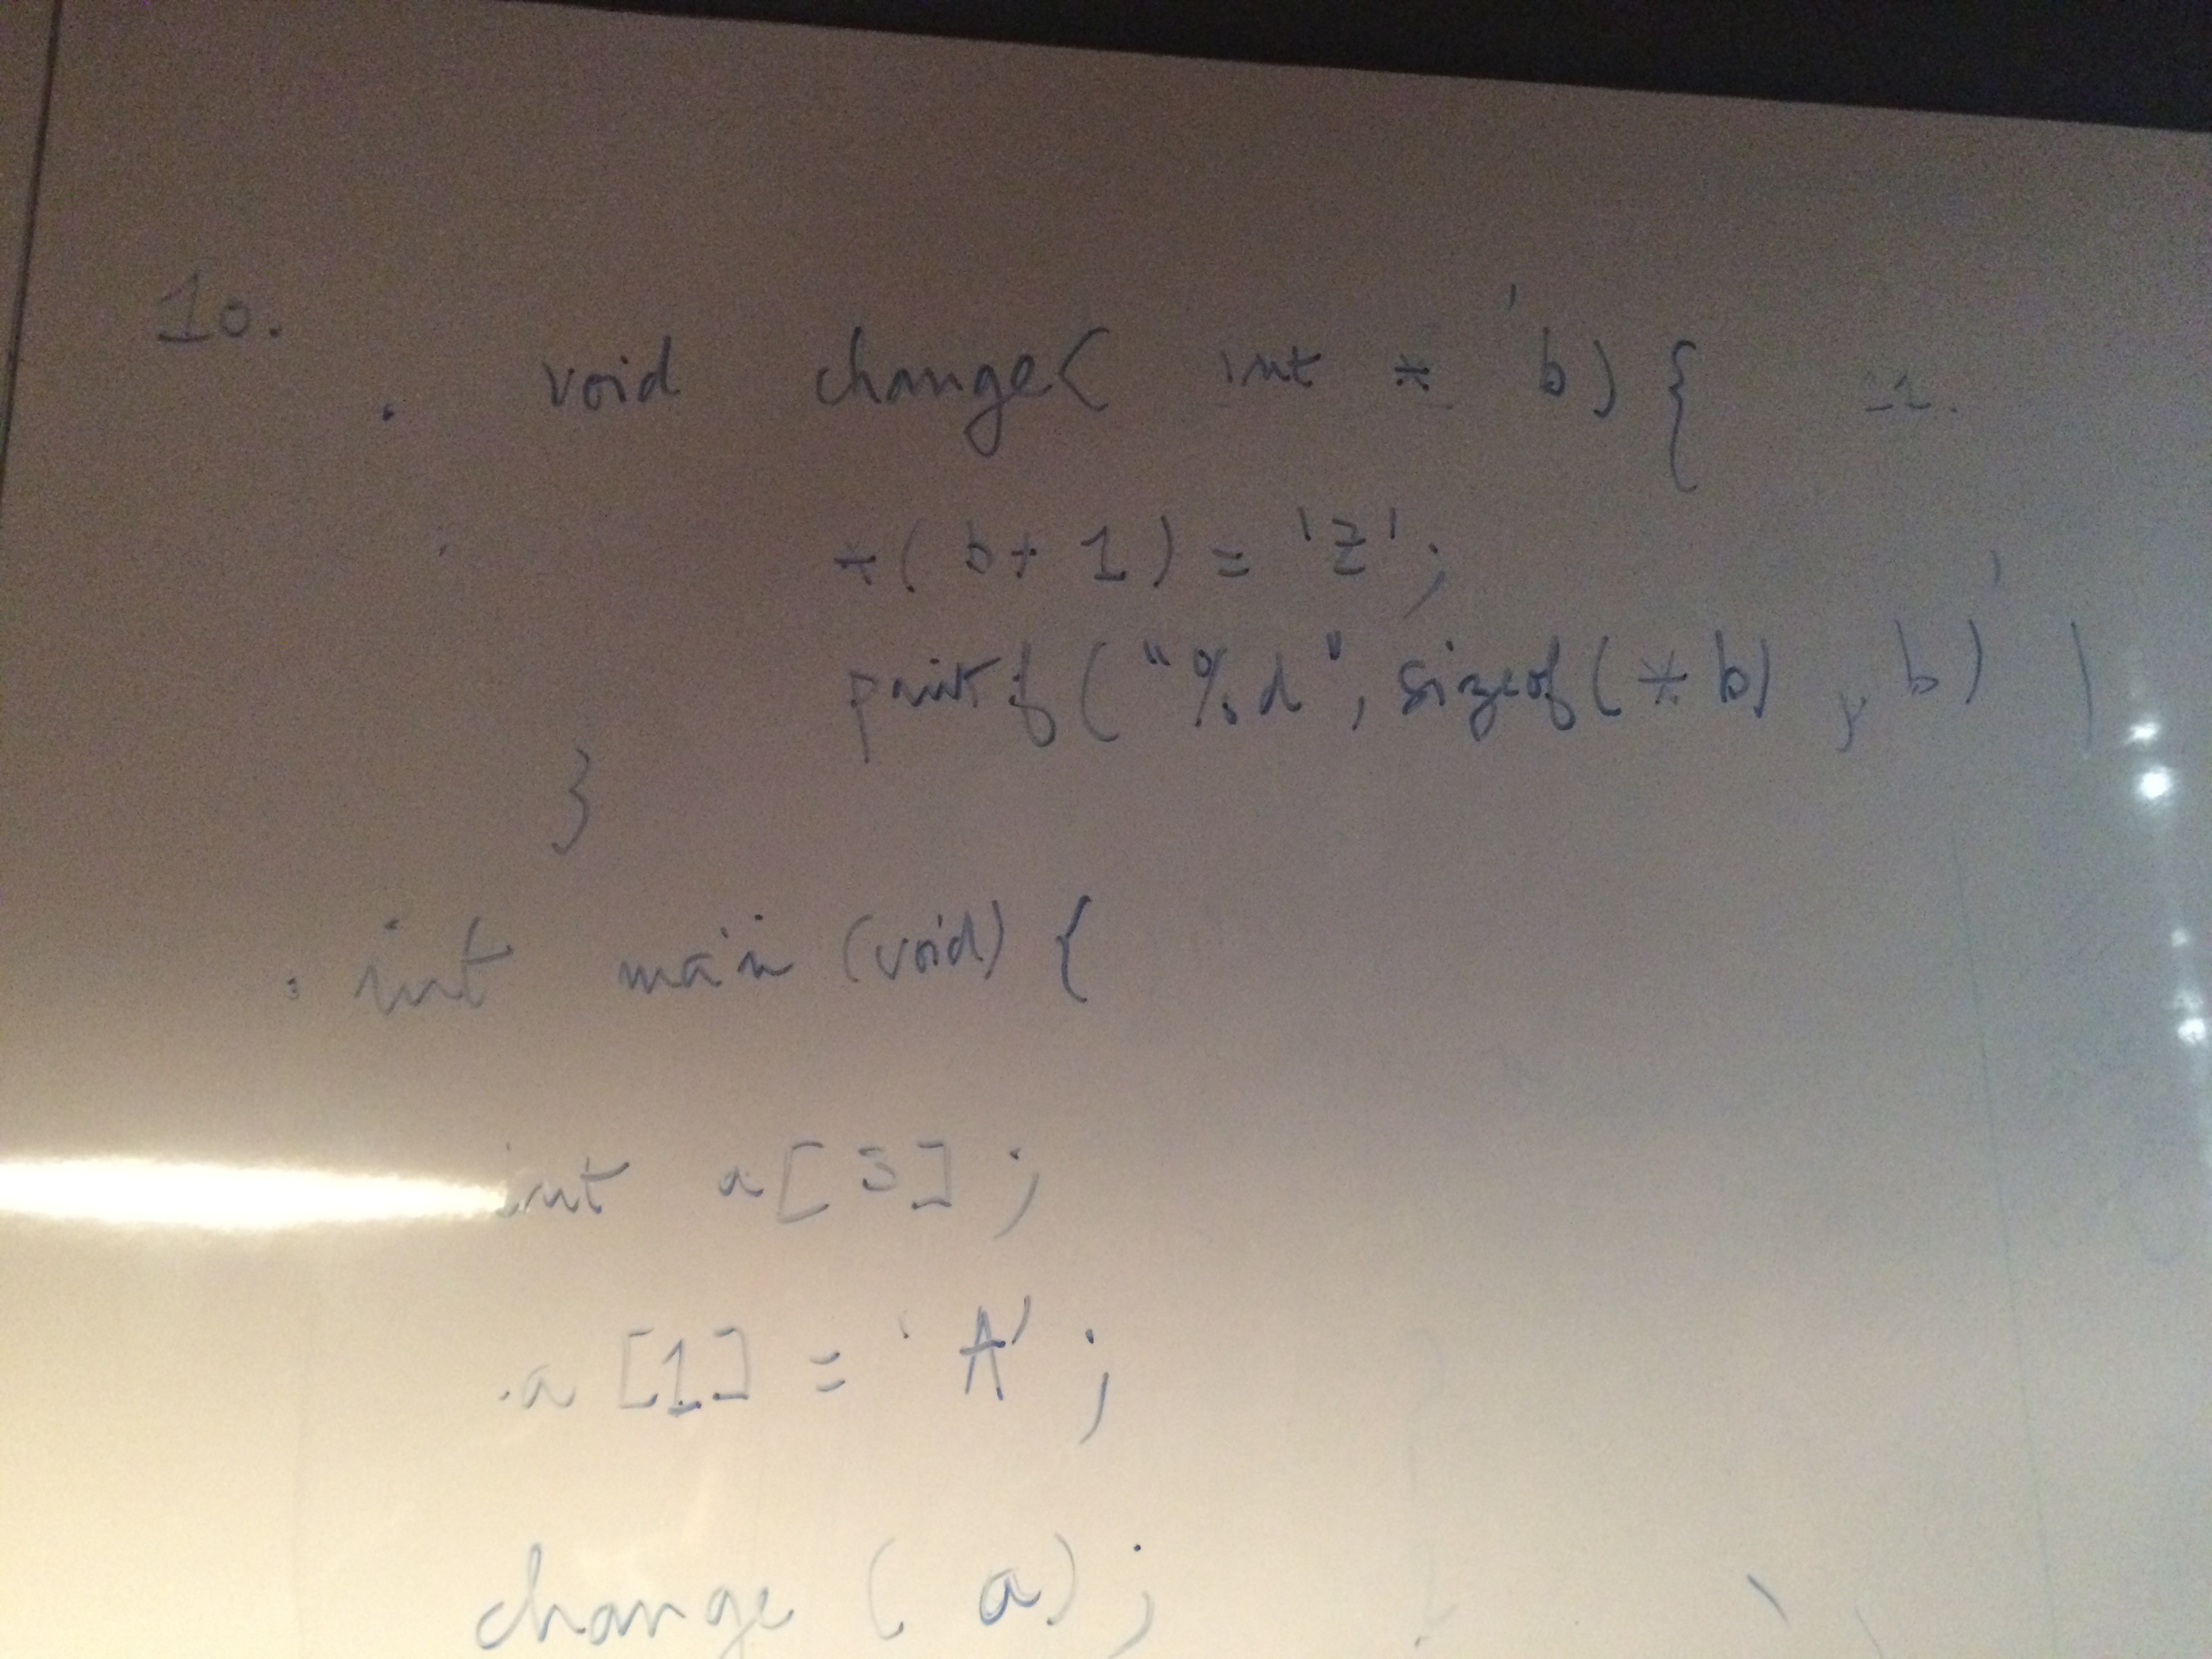 10.
void change( int * b) {
*(b+ 1) = 'Z';
printf("%d", sizeof(*b) , b)
}
int main (void) {
int a[3];
a[1] = 'A';
change ( a);